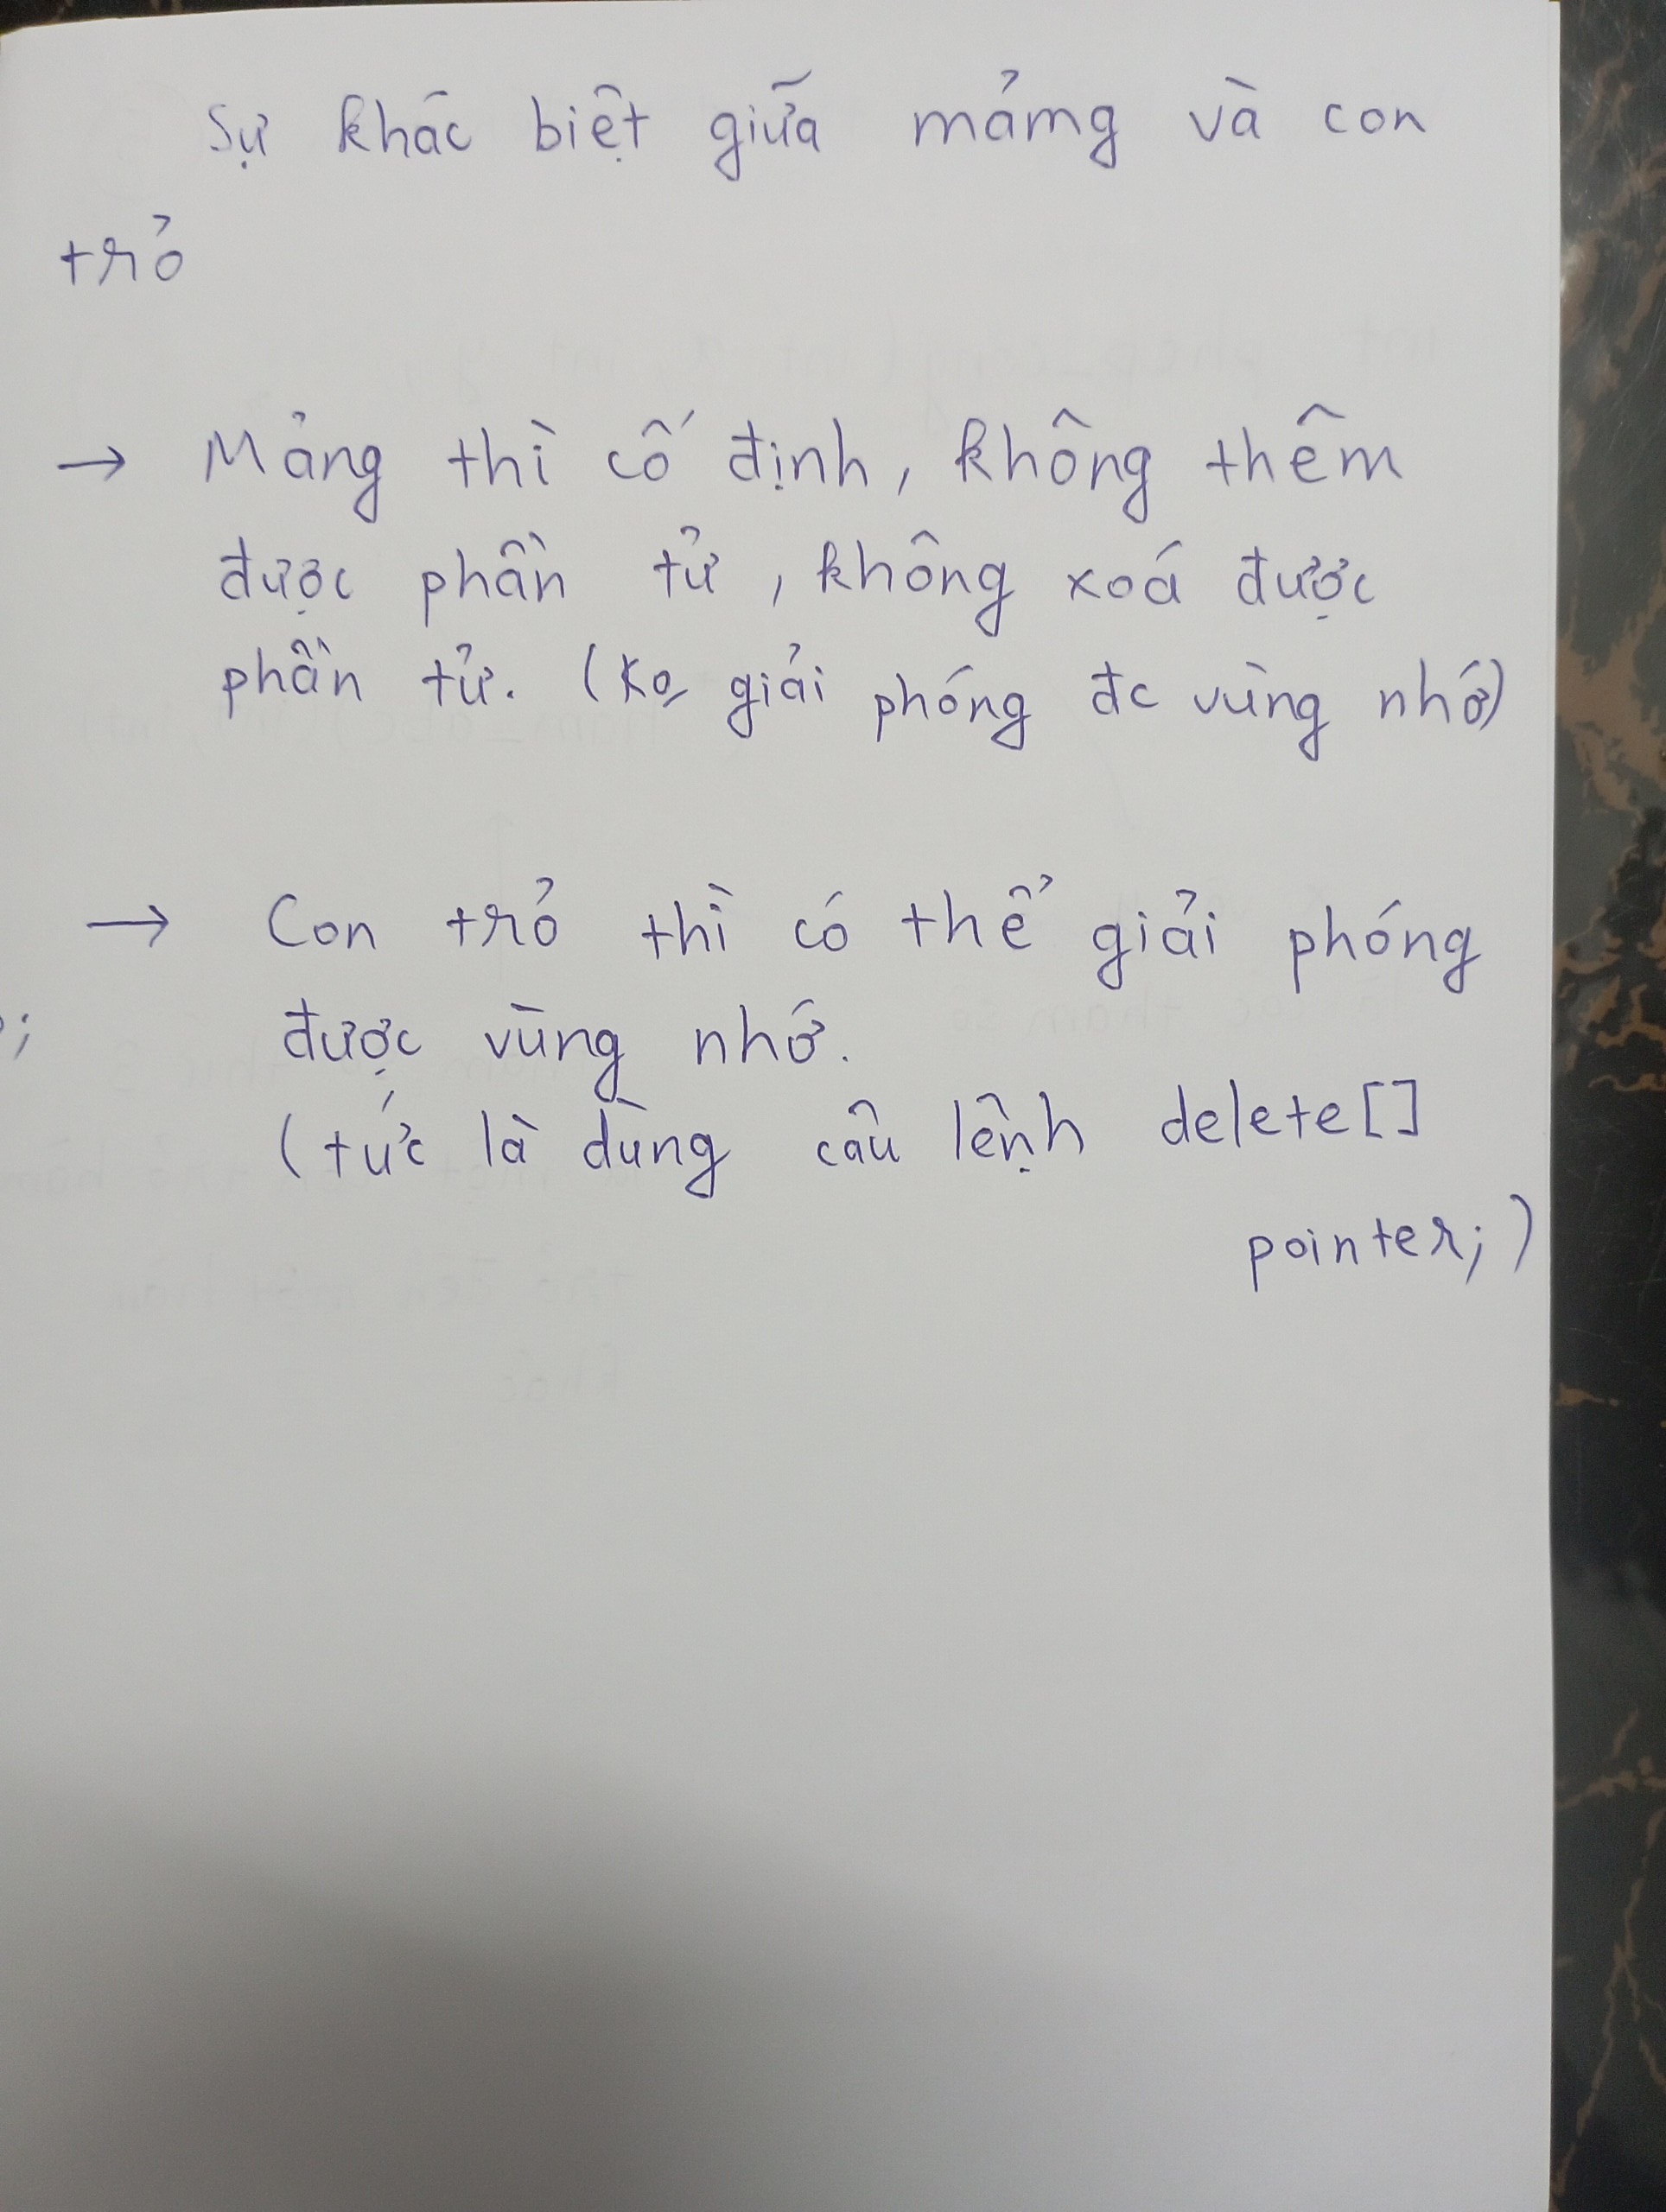 Sự khác biệt giữa mảmg và con
trỏ
→ Mảng thì cố định, không thêm
được phần tử, không xoá được
phần tử. (Ko giải phóng đc vùng nhớ)
→ Con trỏ thì có thể giải phóng
được vùng nhớ.
;
(tức là dùng câu lệnh delete[]
pointer;)